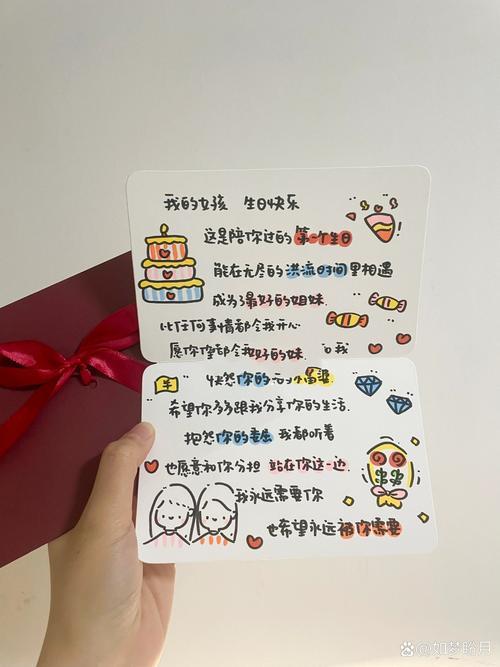 我的女孩 生日快乐
这是陪你过的第一个生日
能在无尽的洪流时间里相遇
成为了最好的姐妹.
比任何事情都令我开心
愿你 都 好的 我
你的 小富婆
希望你多多跟我分享你的生活.
抱怨你的委屈 我都听着
也愿意和你分担 站在你这一边.
我永远需要你
也希望永远被你需要
牛
如梦盼月